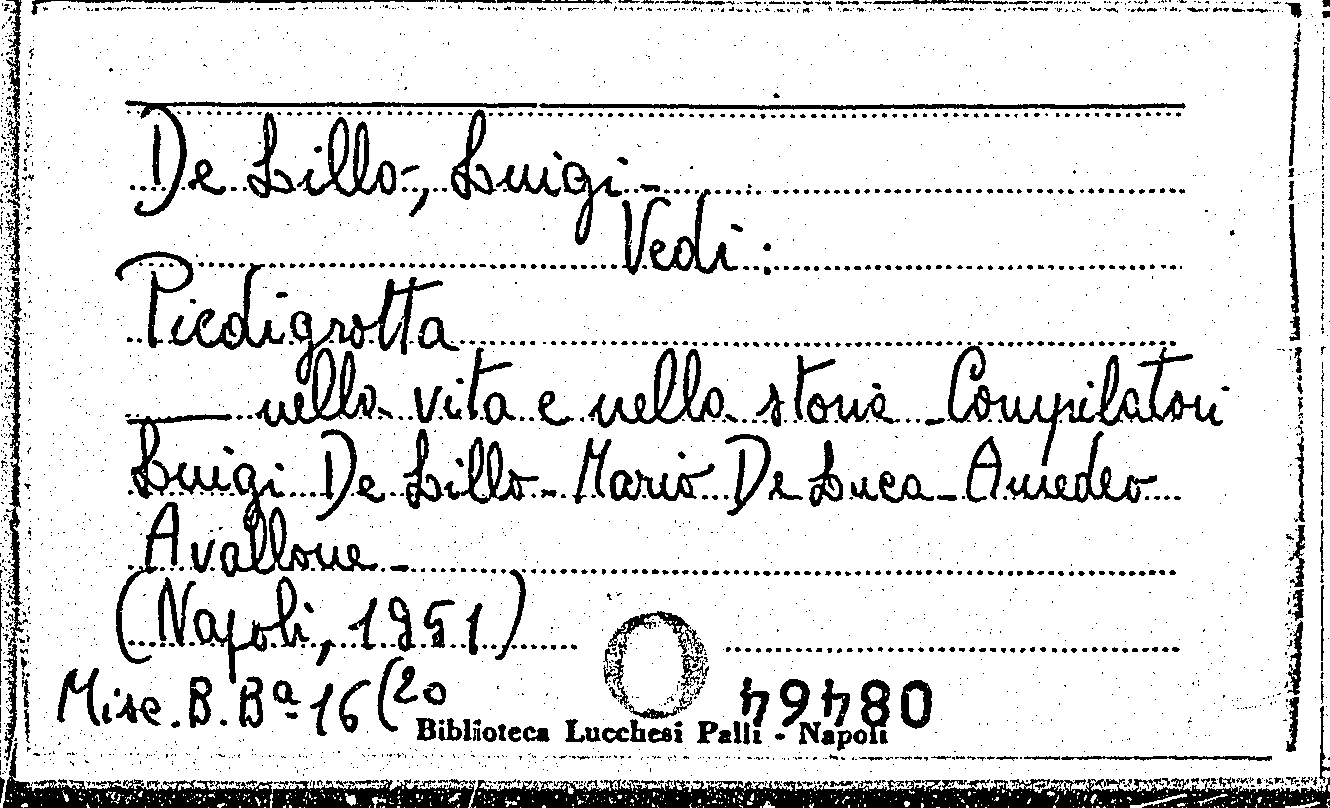 De Lillo, Luigi -
Vedi:
Piedigrotta
— nella vita e nella storia - Compilatori
Luigi De Lillo - Mario De Luca - Amedeo
Avallone -
(Napoli, 1951)
Misc. B. Bª 16 (20
08464
Biblioteca Lucchesi Palli - Napoli